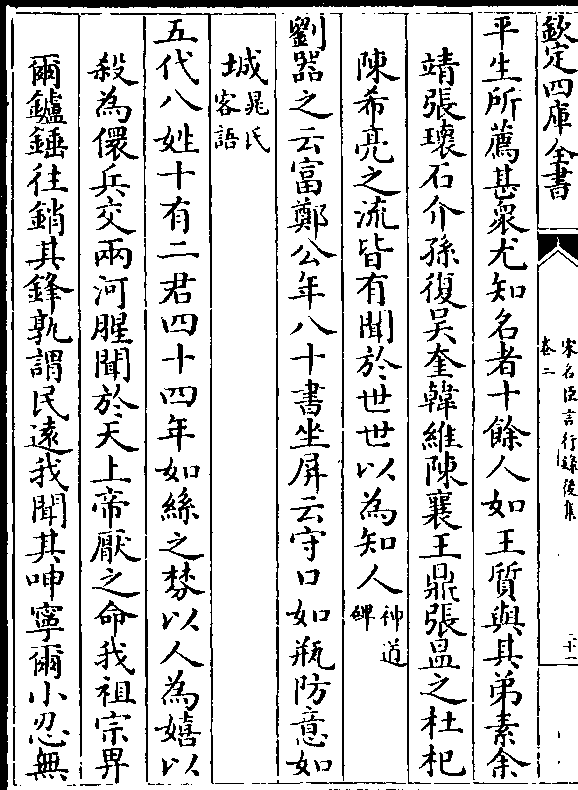 欽定四庫全書
宋名臣言行錄後集
卷二
二十一
平生所薦甚衆尤知名者十餘人如王質與其弟素余
靖張瓌石介孫復吳奎韓維陳襄王鼎張昷之杜杞
陳希亮之流皆有聞於世世以為知人神道
碑
劉器之云富鄭公年八十書坐屏云守口如瓶防意如
城晁氏
客語
五代八姓十有二君四十四年如絲之棼以人為嬉以
殺為儇兵交兩河腥聞於天上帝厭之命我祖宗畀
爾鑪錘往銷其鋒孰謂民遠我聞其呻寧爾小忍無